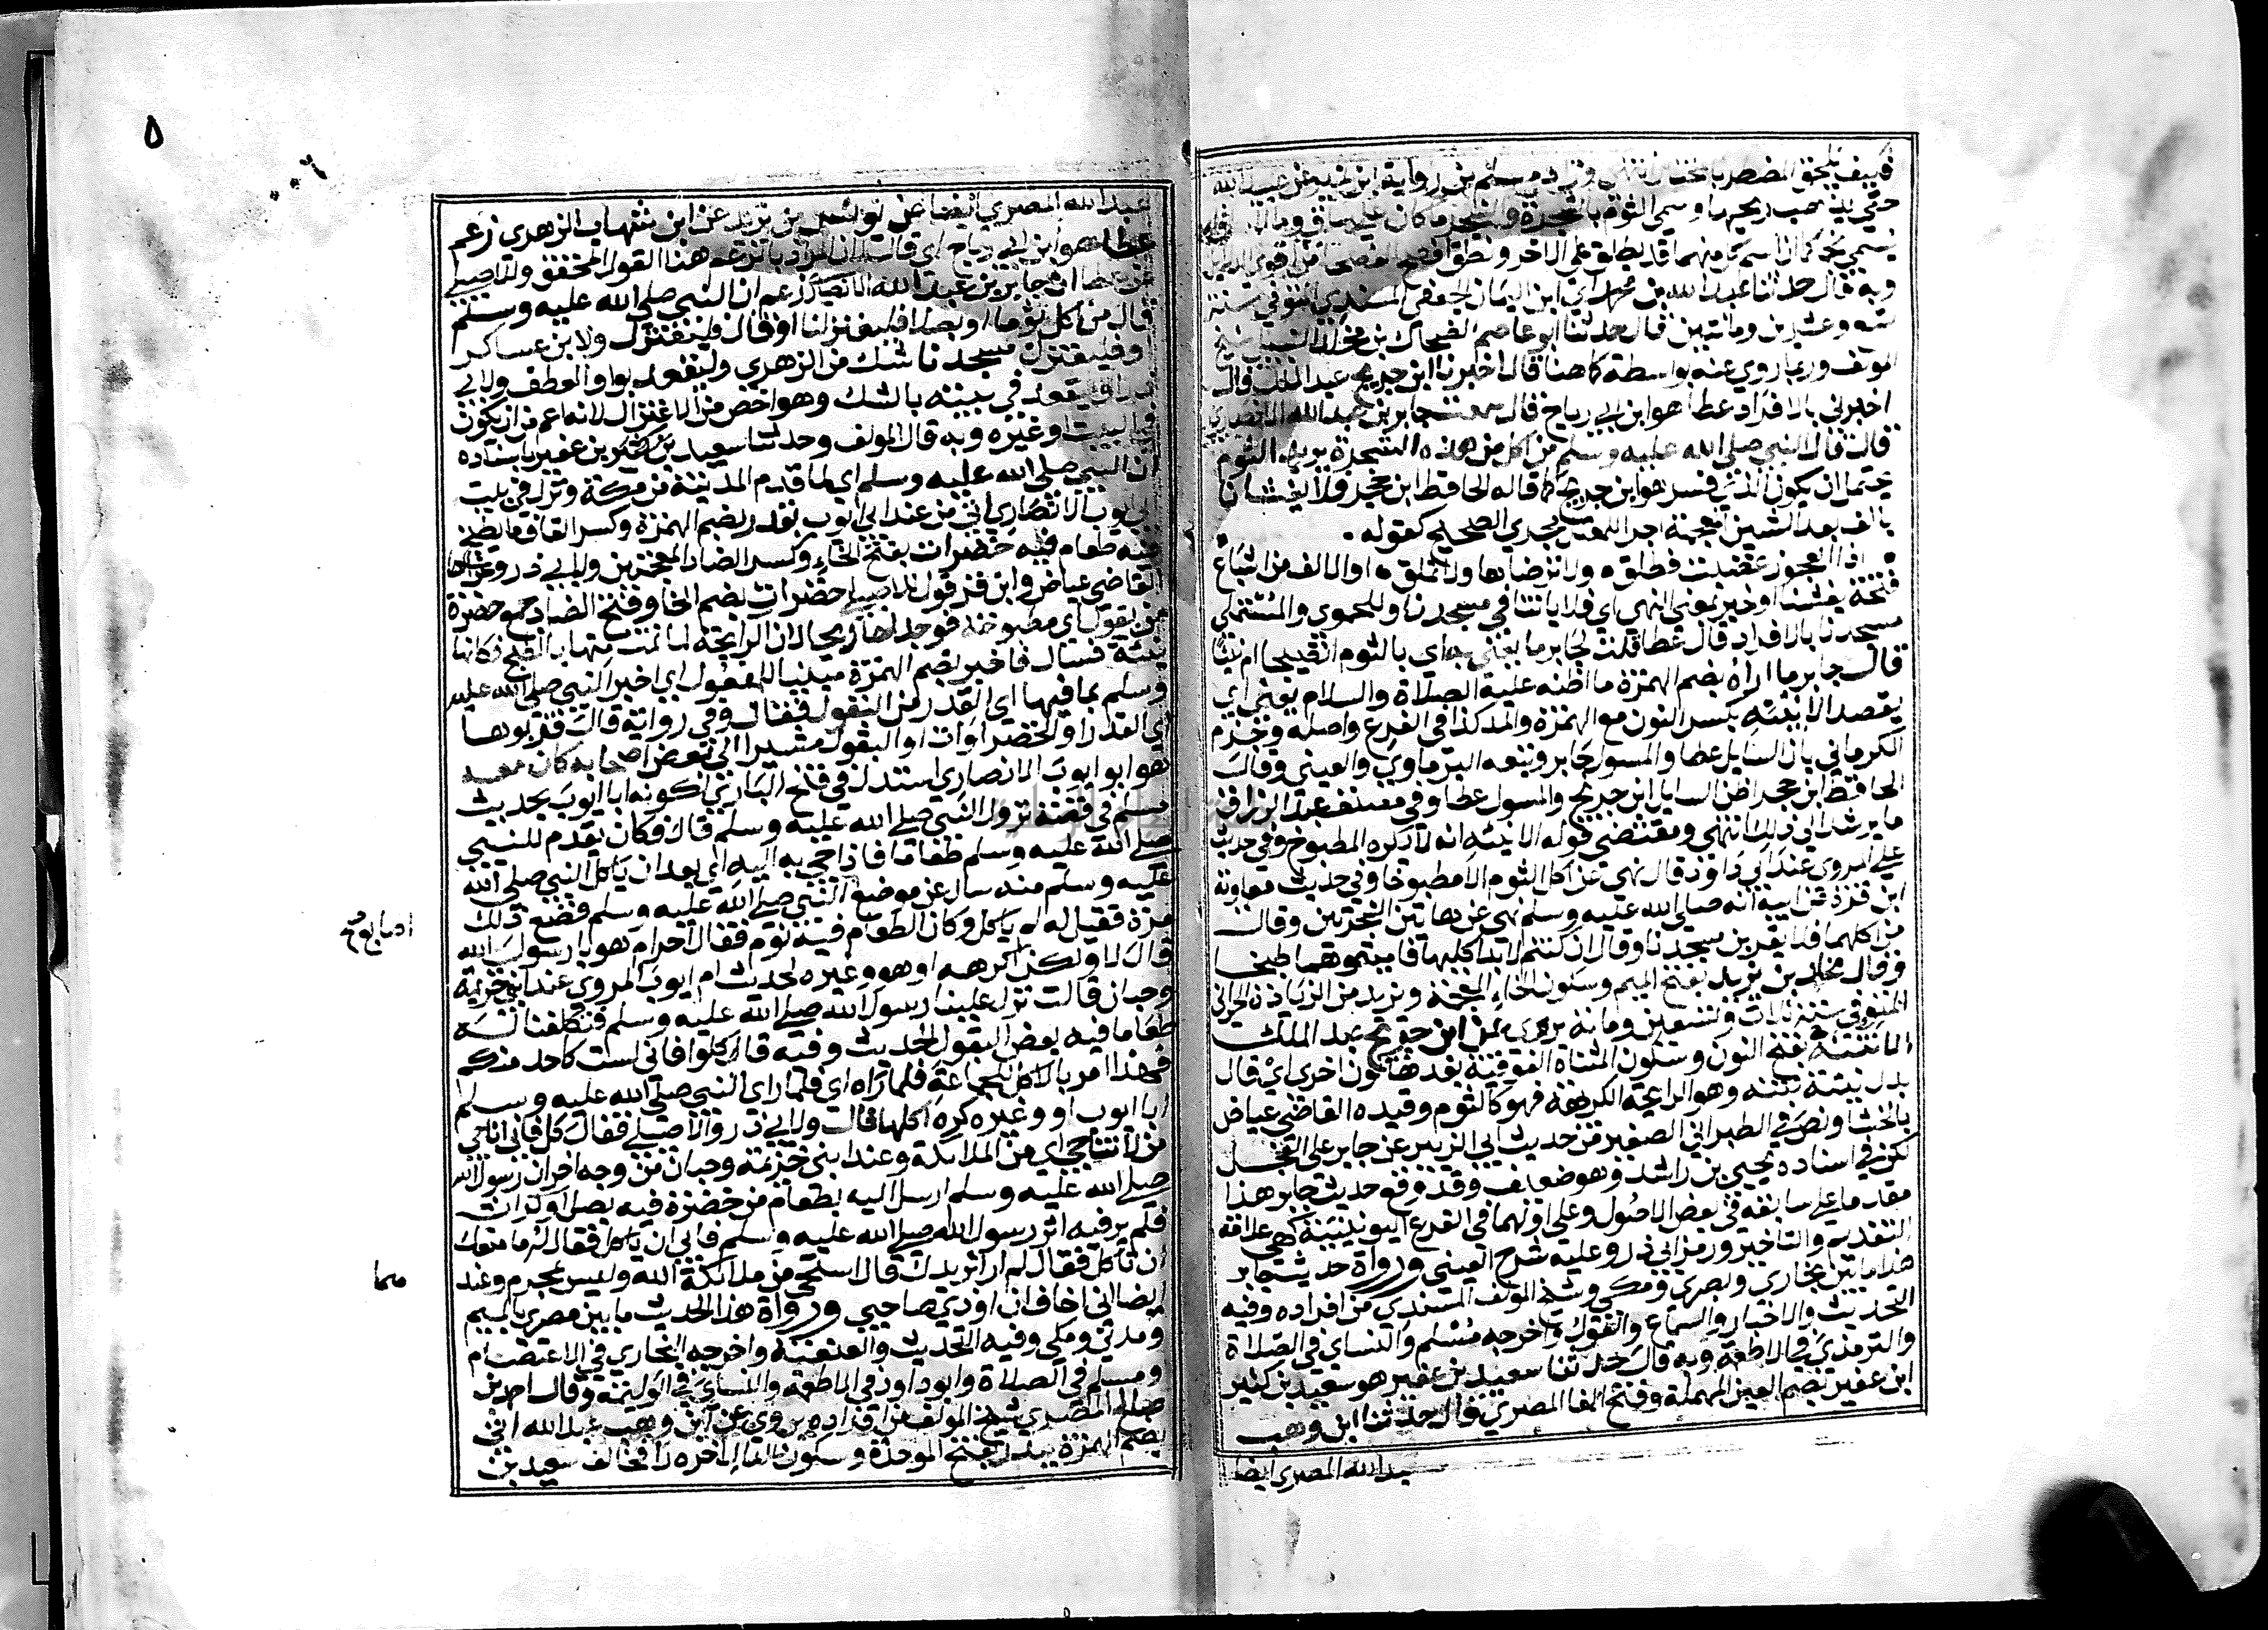 فكيف يلحق المضطر بالمختار انتهى وزاد مسلم من رواية ابن نمير عن عبيد الله
حتى يذهب ريحها وسمى الثوم بالشجرة والشجر ما كان على ساق وما لا ساق له
يسمى نجما كما ان اسم كل منهما قد يطلق على الاخر ونطق افصح الفصحا من اقوى الدلايل
وبه قال حدثنا عبد الله بن محمد اي ابن اليمان الجعفي المسندي المتوفي سنة
تسع وعشرين ومايتين قال حدثنا ابو عاصم الضحاك بن مخلد النبيل شيخ
المولف وربما روي عنه بواسطة كما هنا قال اخبرنا ابن جريج عبد الملك قال
اخبرني بالافراد عطا هو ابن ابي رباح قال سمعت جابر بن عبد الله الانصاري
قال قال النبي صلى الله عليه وسلم من اكل من هذه الشجرة يريد الثوم
يحتمل ان يكون الذي فسر هو ابن جريج كما قاله الحافظ ابن حجر فلا يغشانا
بالف بعد الشين المعجمة اجرا للمعتل مجرى الصحيح كقوله .
اذا العجوز غضبت فطلق ه ولا ترضاها ولا تملق ه او الالف من اشباع
فتحة يغشنا او خبر بمعنى النهي اي فلا ياتنا في مسجدنا وللحموي والمستملي
مسجدنا بالافراد قال عطا قلت لجابر ما يعني به اي بالثوم انضيجا ام نيئا
قال جابر ما اراه بضم الهمزة ما اظنه عليه الصلاة والسلام يعني اي
يقصد الا نيئه بكسر النون مع الهمزة والمد كذا في الفرع واصله وجزم
الكرماني بان السايل عطا والمسول جابر وتبعه البرماوي والعيني وقال
الحافظ ابن حجر اظن السايل ابن جريج والمسول عطا وفي مصنف عبد الرزاق
ما يرشد الى ذلك انتهى ومقتضى قوله الا نيئه انه لا يكره المطبوخ وفي حديث
علي المروى عند ابي داود قال نهي عن اكل الثوم الا مطبوخا وفي حديث معاوية
ابن قرة عن ابيه انه صلى الله عليه وسلم نهي عن هاتين الشجرتين وقال
من اكلهما فلا يقربن مسجدنا وقال ان كنتم لابد اكليها فاميتموهما طبخا
وقال مخلد بن يزيد بفتح الميم وسكون الخاء المعجمة ويزيد من الزيادة الحراني
المتوفي سنة ثلاث وتسعين وماية يروى عن ابن جريج عبد الملك
الا نتنه بفتح النون وسكون المثناة الفوقية بعدها نون اخرى اي قال
بدل نيئه نتنه وهو الرايحة الكريهة فهو كالثوم وقيده القاضي عياض
بالجشا ونص في الطبراني الصغير من حديث ابي الزبير عن جابر على الفجل
لكن في اسناده يحيى بن راشد وهو ضعيف وقد وقع حديث جابر هذا
مقدما على سابقه في بعض الاصول وعلى اولهما في الفرع اليونينية كهي علامة
التقديم والتاخير ورمز ابي ذر وعليه شرح العيني ورواة حديث جابر
هذا ما بين بخاري وبصري ومكي وشيخ المولف المسندي من افراده وفيه
التحديث والاخبار والسماع والقول واخرجه مسلم والنساي في الصلاة
والترمذي في الاطعمة وبه قال حدثنا سعيد بن عفير هو سعيد بن كثير
ابن عفير بضم العين المهملة وفتح الفا المصري قال حدثنا ابن وهب
عبد الله المصري ايضا
عبد الله المصري ايضا عن يونس بن يزيد عن ابن شهاب الزهري زعم
عطا هو ابن ابي رباح اي قال لان المراد بالزعم هنا القول المحقق وللاصيلي
عن عطا ان جابر بن عبد الله الانصاري زعم ان النبي صلى الله عليه وسلم
قال من اكل ثوما او بصلا فليعتزلنا او قال فليعتزل ولابن عساكر
او فليعتزل مسجدنا شك من الزهري وليقعد بواو العطف ولابي
ذر او ليقعد في بيته بالشك وهو اخص من الاعتزال لانه اعم من ان يكون
في البيت او غيره وبه قال المولف وحدثنا سعيد بن كثير بن عفير باسناده
ان النبي صلى الله عليه وسلم اي لما قدم المدينة من مكة ونزل في بيت
ابي ايوب الانصاري اتي من عند ابي ايوب بقدر بضم الهمزة وكسر القاف ما يطبخ
فيه طعام فيه خضرات بفتح الخاء وكسر الضاد المعجمتين ولابي ذر وعزاها
القاضي عياض وابن قرقول للاصيلي خضرات بضم الخا وفتح الضاد جمع خضرة
من بقول اي مطبوخة فوجد لها ريحا لان الرايحة لما تمت منها بالطبخ فكانها
نيئة فسال فاخبر بضم الهمزة مبنيا للمفعول اي اخبر النبي صلى الله عليه
وسلم بما فيها اي القدر من البقول فقال وفي رواية قال قربوها
اي القدر او الخضراوات او البقول مشيرا الى بعض اصحابه كان معه
هو ابو ايوب الانصاري استدل في فتح الباري لكونه ابا ايوب بحديث
مسلم في قصة نزول النبي صلى الله عليه وسلم قال فكان يقدم للنبي
صلى الله عليه وسلم طعاما فاذا جي به اليه اي بعد ان ياكل النبي صلى الله
عليه وسلم منه سال عن موضع النبي صلى الله عليه وسلم فصنع ذلك
مرة فقيل له لم ياكل وكان الطعام فيه ثوم فقال احرام هو يا رسول الله
قال لا ولكن اكرهه او هو وغيره لحديث ام ايوب المروى عند ابني خزيمة
وحبان قالت نزل علينا رسول الله صلى الله عليه وسلم فتكلفنا له
طعاما فيه بعض البقول الحديث وفيه قال كلوا فاني لست كاحد منكم
فهذا امر بالاكل للجماعة فلما راه اي فلما راى النبي صلى الله عليه وسلم
ابا ايوب او وغيره كره اكلها قال ولابي ذر والاصيلي فقال كل فاني اناجي
من لا تناجي اي من الملايكة وعند ابني خزيمة وحبان من وجه اخر ان رسول الله
صلى الله عليه وسلم ارسل اليه بطعام من خضرة فيه بصل او كراث
فلم ير فيه اثر رسول الله صلى الله عليه وسلم فابي ان ياكل فقال له ما منعك
ان تاكل فقال لم ار اثر يدك قال استحي من ملايكة الله وليس بمحرم وعند
ايضا اني اخاف ان اوذي صاحبي ورواة هذا الحديث ما بين مصري بالميم
ومدني ومكي وفيه التحديث والعنعنة واخرجه البخاري في الاعتصام
ومسلم في الصلاة وابو داود في الاطعمة والنساي في الوليمة وقال احمد بن
صالح المصري شيخ المولف من افراده يروى عن ابن وهب عبد الله اتي
بضم الهمزة ببدر بفتح الموحدة وسكون الدال اخره را فخالف سعيد بن